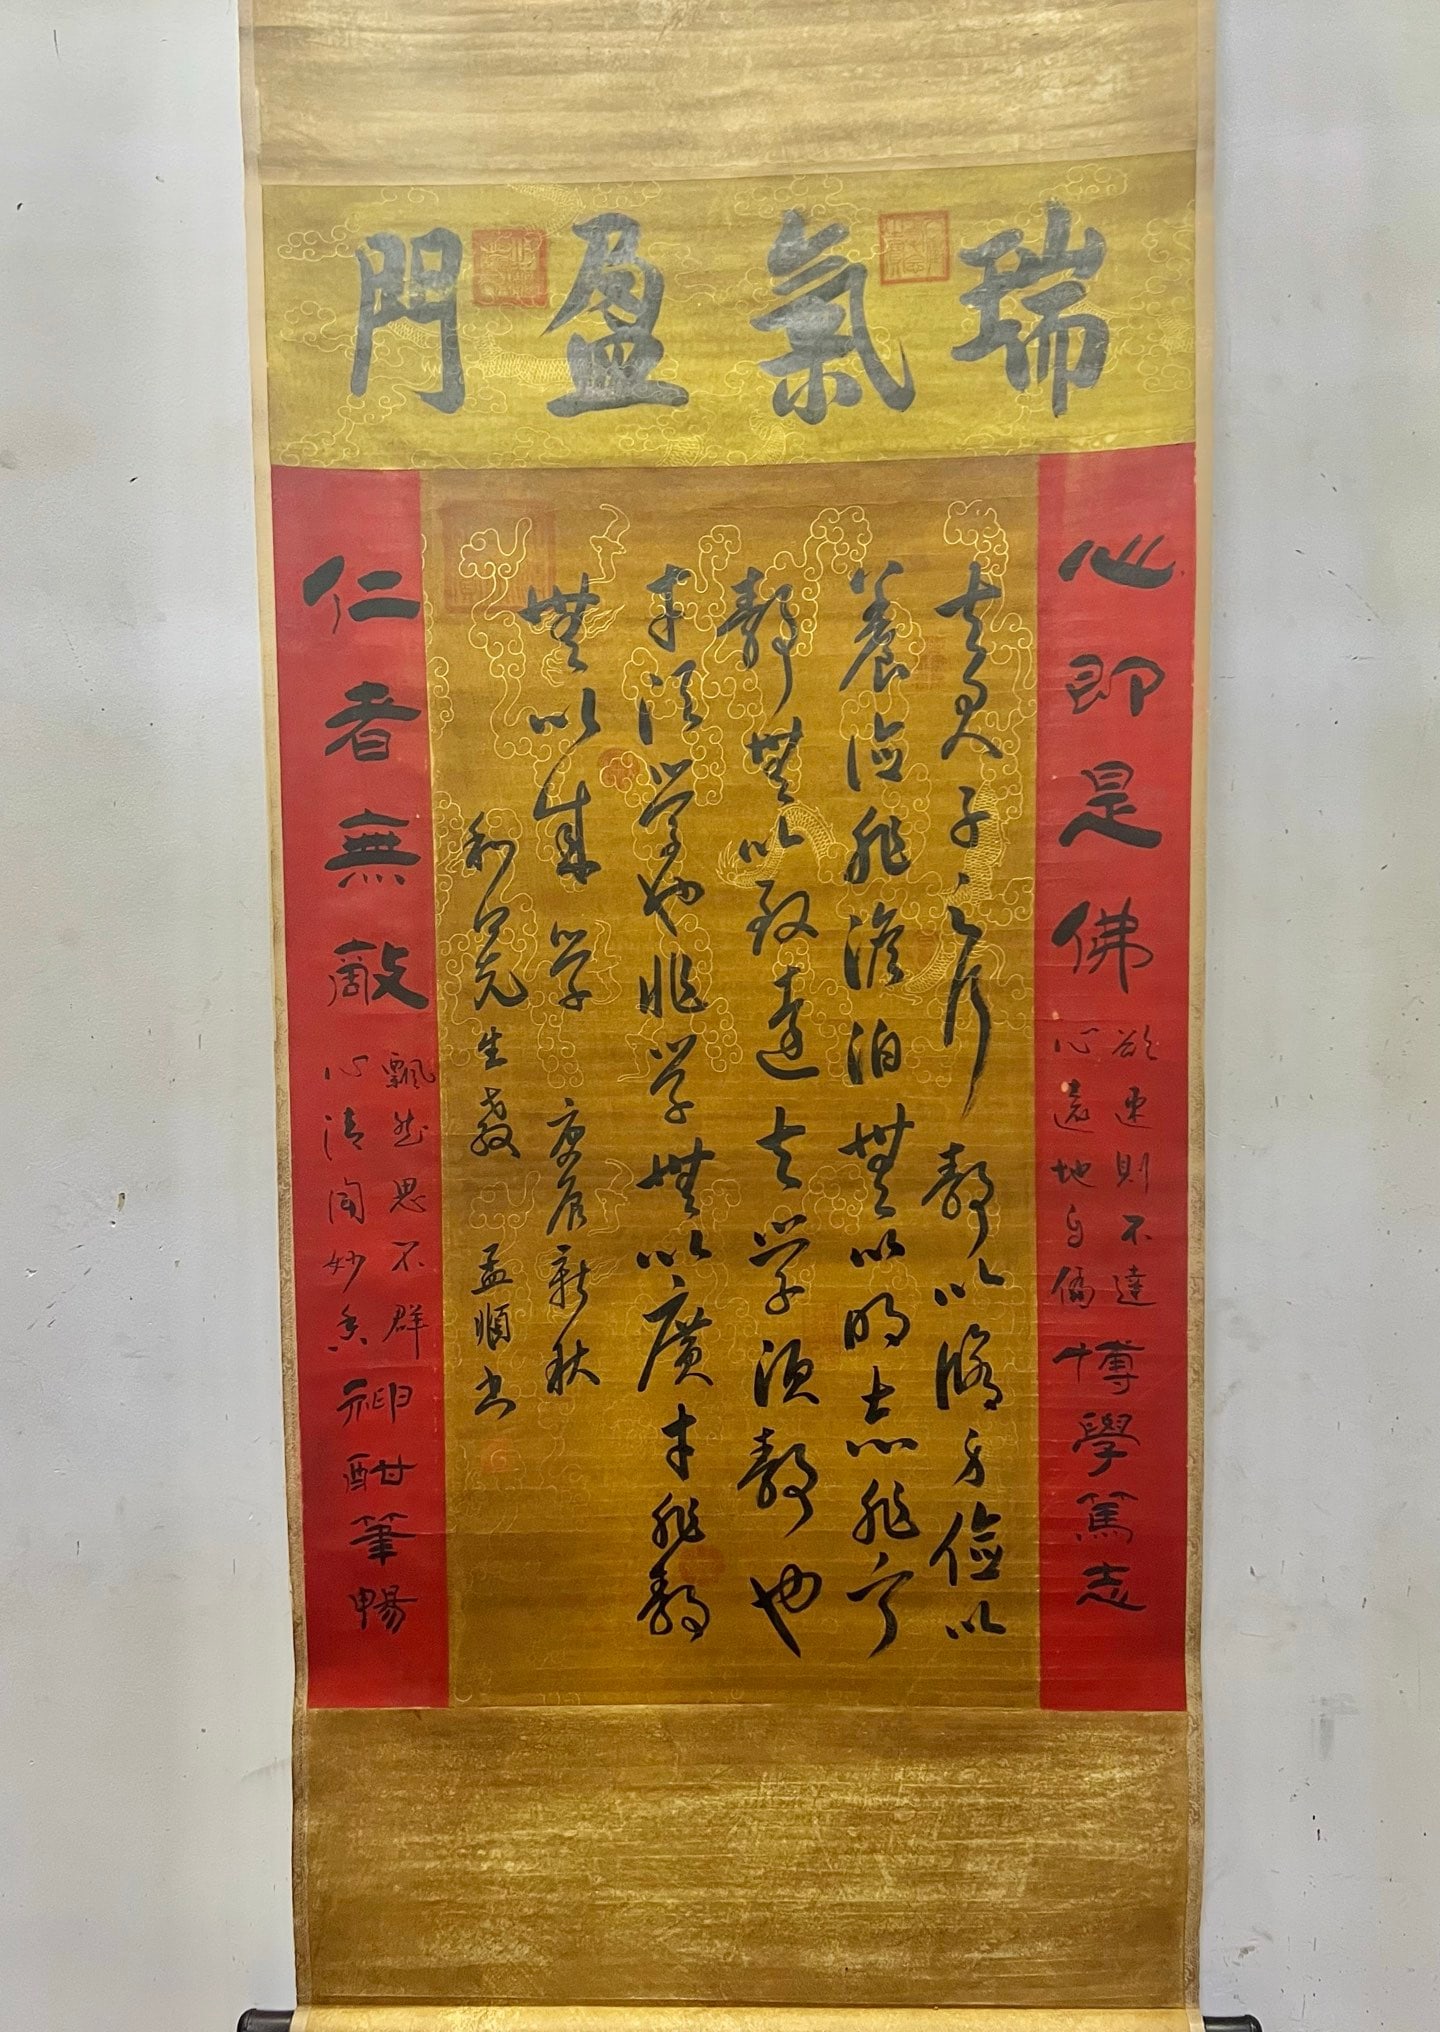 瑞氣盈門
心即是佛
欲速則不達
心遠地自偏
博學篤志
夫君子之行靜以修身儉以
養儉非澹泊無以明志非寧
靜無以致遠夫學須靜也
才須學也非學無以廣才非靜
無以成學
庚辰新秋
利民先生教
孟順書
仁者無敵
飄然思不群
心清聞妙香
神酣筆暢